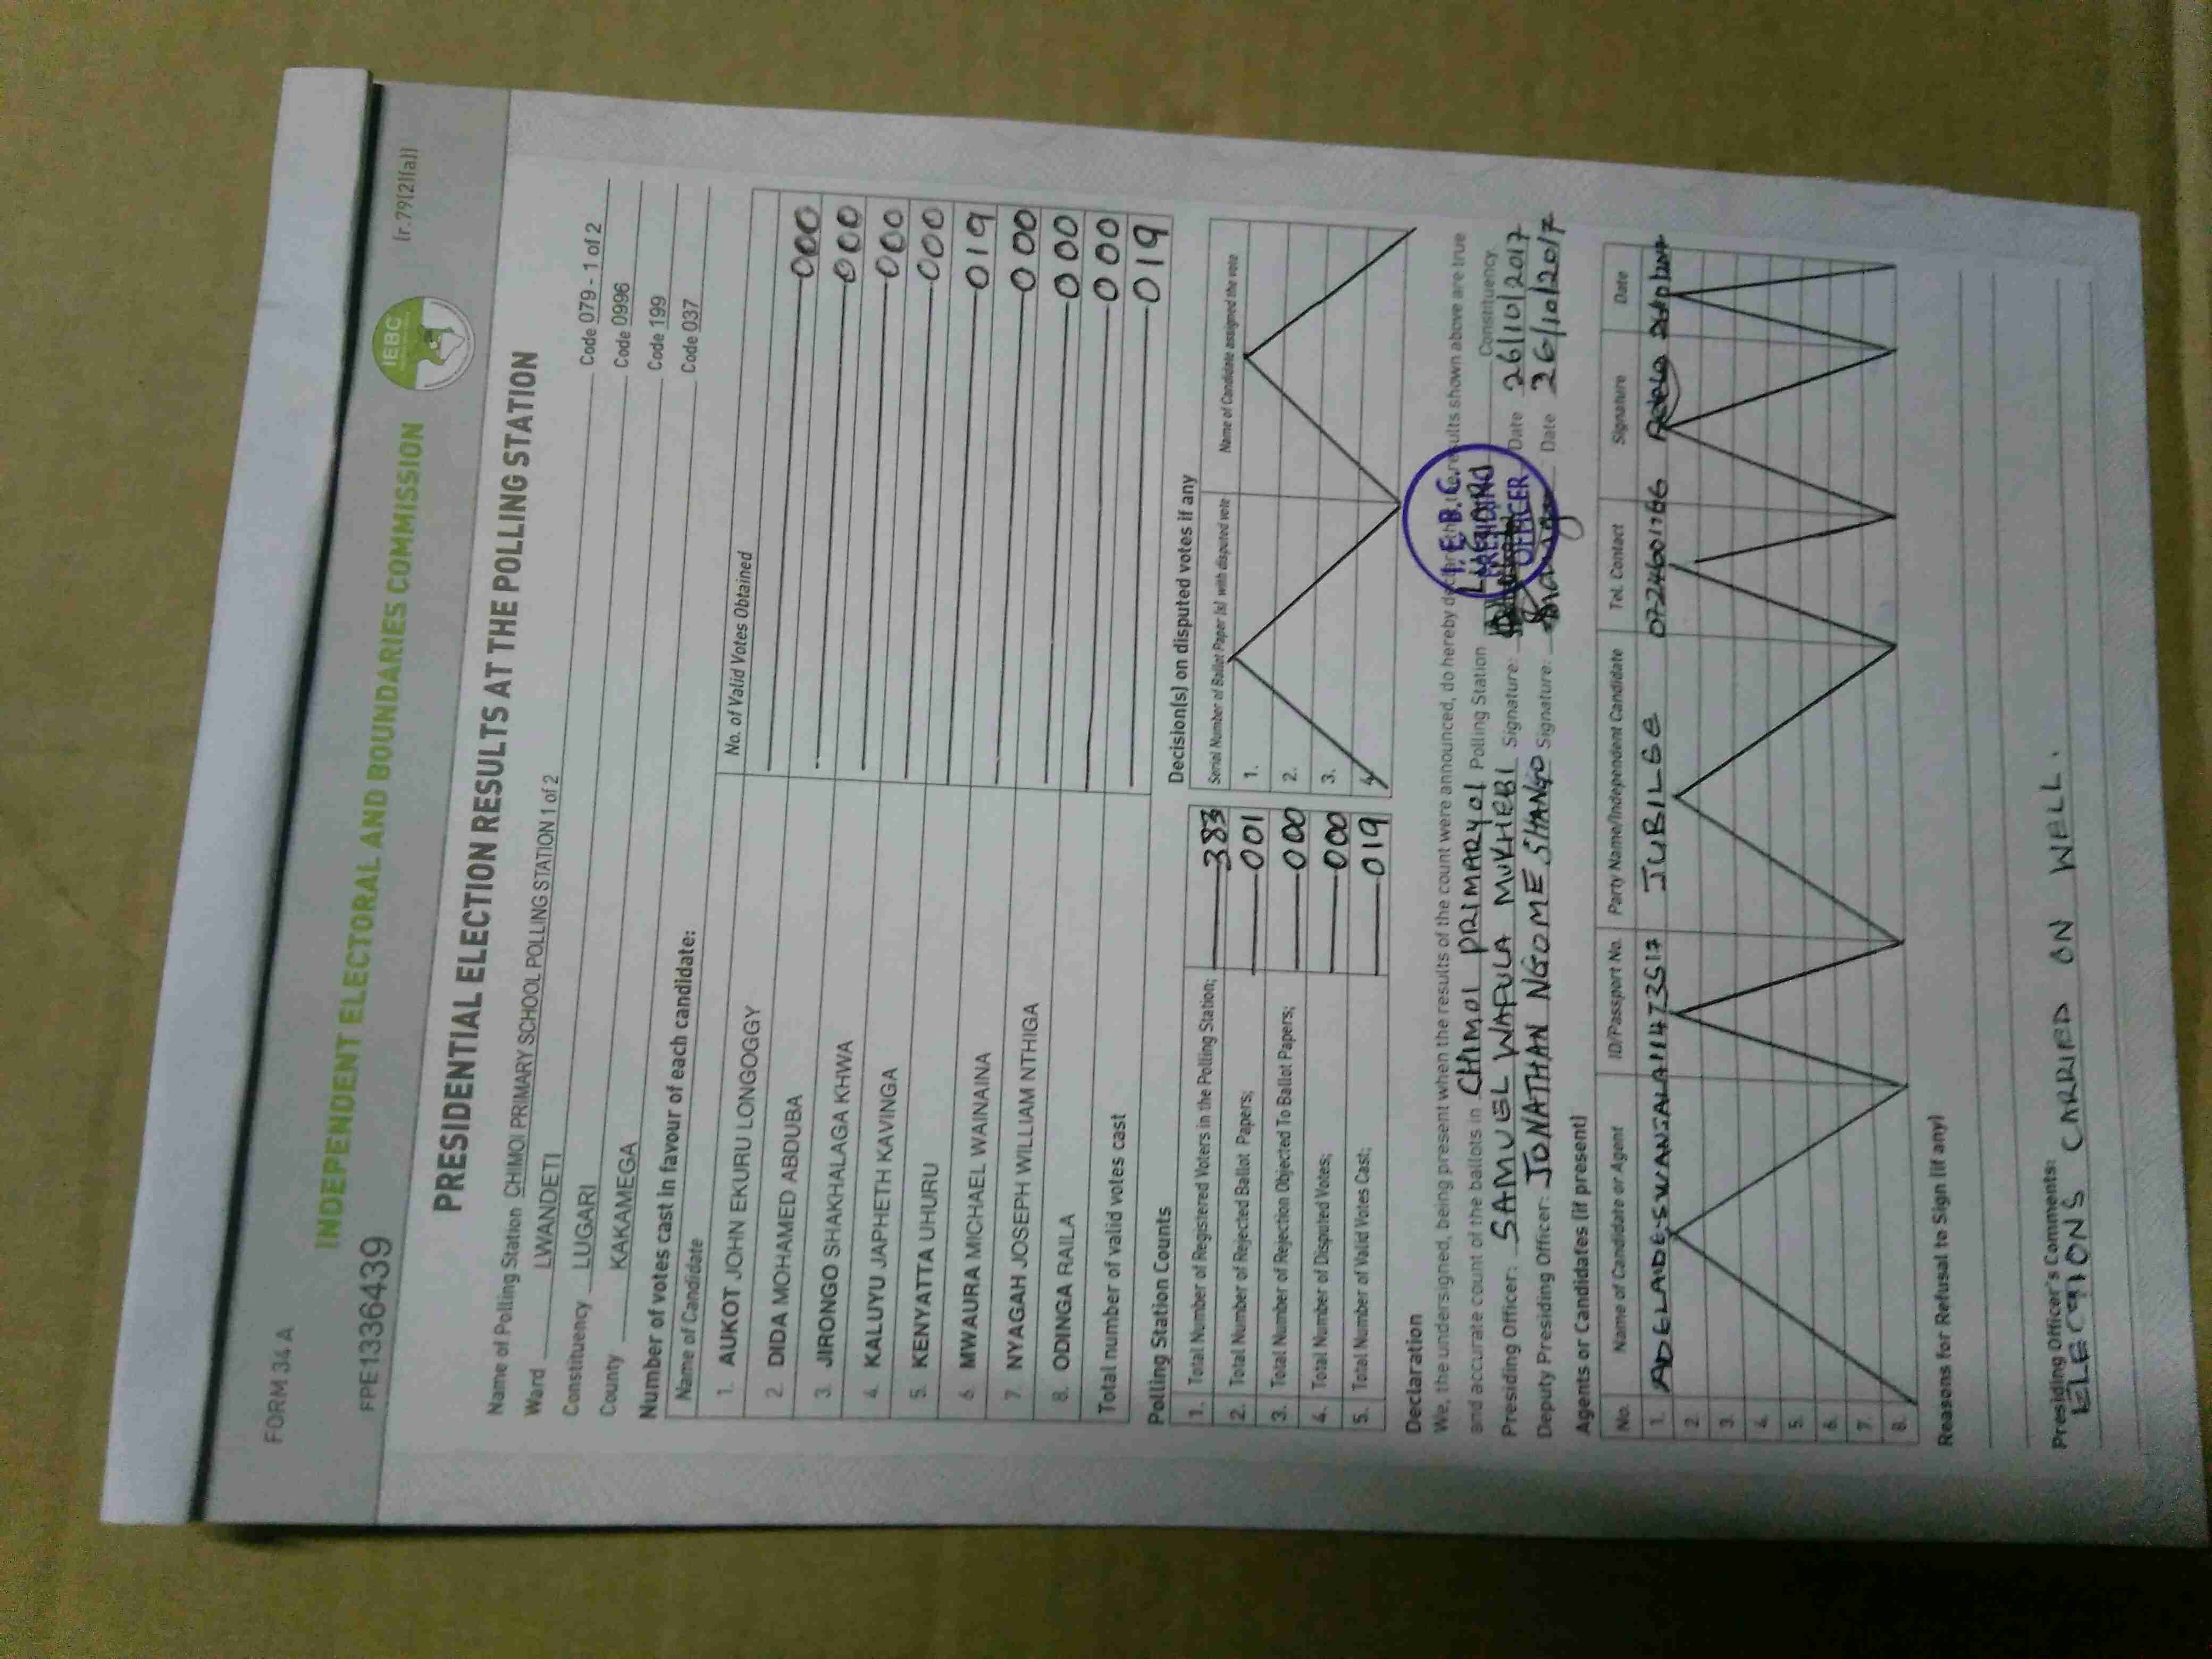 FORM 34 A
(r.79(2)(a))
IEBC
INDEPENDENT ELECTORAL AND BOUNDARIES COMMISSION
FPE1336439
PRESIDENTIAL ELECTION RESULTS AT THE POLLING STATION
Name of Polling Station CHIMOI PRIMARY SCHOOL POLLING STATION 1 of 2 Code 079 - 1 of 2
Ward LWANDETI Code 0996
Constituency LUGARI Code 199
County KAKAMEGA Code 037
Number of votes cast in favour of each candidate:
Name of Candidate No. of Valid Votes Obtained
1. AUKOT JOHN EKURU LONGOGGY 000
2. DIDA MOHAMED ABDUBA 000
3. JIRONGO SHAKHALAGA KHWA 000
4. KALUYU JAPHETH KAVINGA 000
5. KENYATTA UHURU 019
6. MWAURA MICHAEL WAINAINA 000
7. NYAGAH JOSEPH WILLIAM NTHIGA 000
8. ODINGA RAILA 000
Total number of valid votes cast 019
Polling Station Counts
1. Total Number of Registered Voters in the Polling Station; 383
2. Total Number of Rejected Ballot Papers; 001
3. Total Number of Rejection Objected To Ballot Papers; 000
4. Total Number of Disputed Votes; 000
5. Total Number of Valid Votes Cast; 019
Decision(s) on disputed votes if any
Serial Number of Ballot Paper (s) with disputed vote Name of Candidate assigned the vote
1.
2.
3.
4
Declaration
We, the undersigned, being present when the results of the count were announced, do hereby declare that the results shown above are true
and accurate count of the ballots in CHIMOI PRIMARY 01 Polling Station LUGARI Constituency
Presiding Officer: SAMUEL WAFULA MUKHEBI Signature: Date 26/10/2017
Deputy Presiding Officer: JONATHAN NGOME SHANGO Signature: Date 26/10/2017
I.E.B.C.
PRESIDING
OFFICER
Agents or Candidates (if present)
No. Name of Candidate or Agent ID/Passport No. Party Name/Independent Candidate Tel. Contact Signature Date
1. ADELADE.S.WANJALA 11473517 JUBILEE 0724601766
2.
3.
4.
5.
6.
7.
8.
Reasons for Refusal to Sign (if any)
Presiding Officer's Comments:
ELECTIONS CARRIED ON WELL.